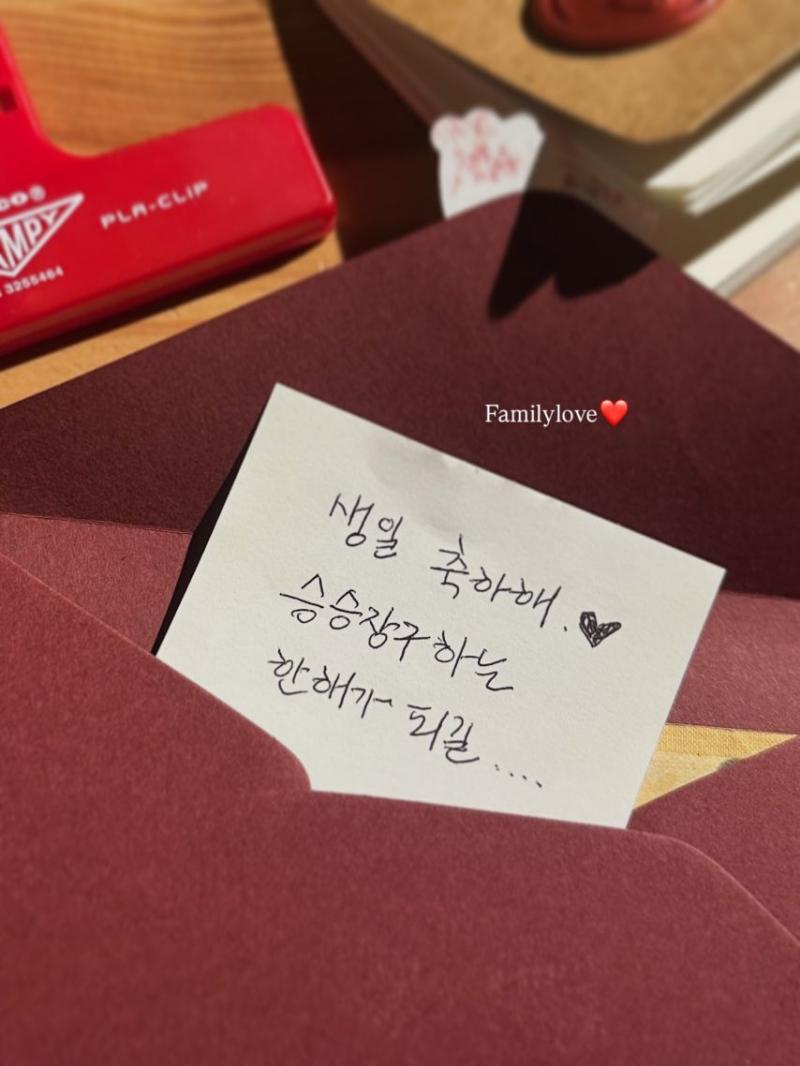 PLA-CLIP
3255464
Familylove❤️
생일 축하해.♥
승승장구 하는
한해가 되길....